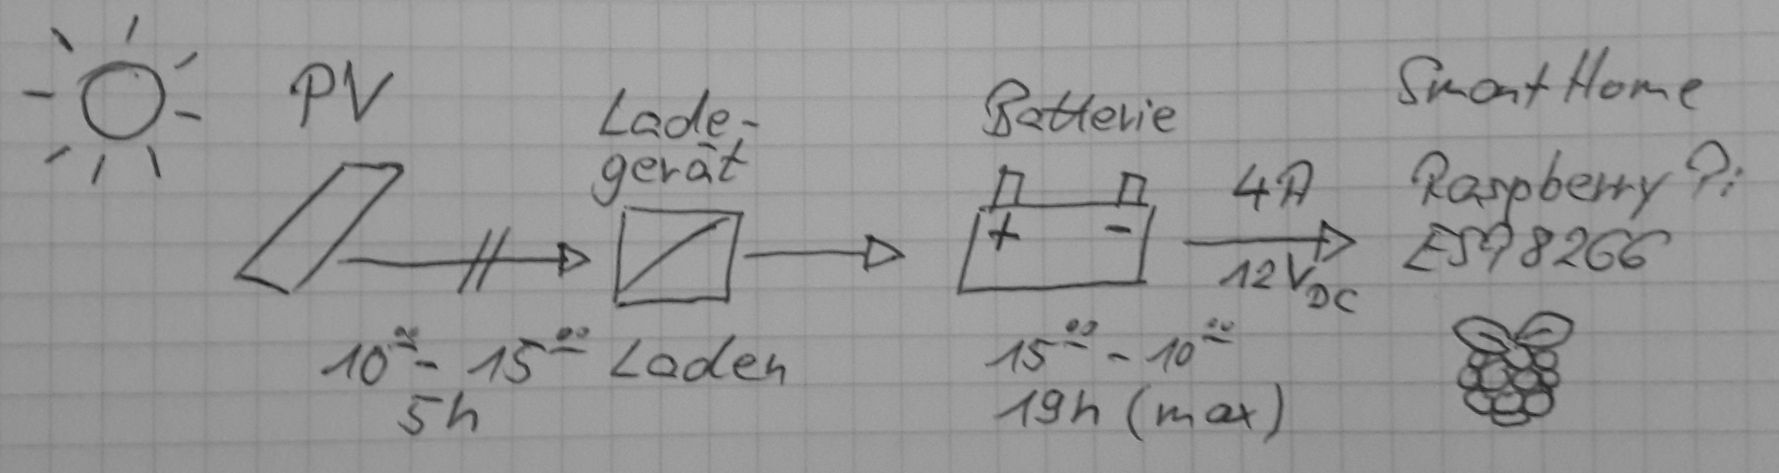 PV
Lade-
gerät
Batterie
Smart Home
+ -
4A
12V DC
Raspberry Pi
ESP8266
10⁰⁰ - 15⁰⁰ Laden
5h
15⁰⁰ - 10⁰⁰
19h (max)